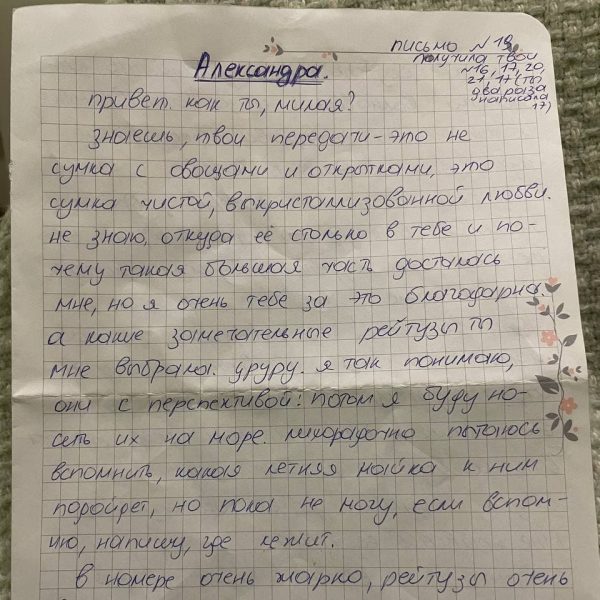 письмо №19
получила твои
№16, 17, 20,
21, 17 (ты
два раза
написала
17)
Александра.
привет. как ты, милая?
знаешь, твои передачи – это не
сумка с овощами и открытками, это
сумка чистой, выкристаллизованной любви.
не знаю, откуда её столько в тебе и по-
чему такая большая часть досталась
мне, но я очень тебе за это благодарна.
а какие замечательные рейтузы ты
мне выбрала. уруру. я так понимаю,
они с перспективой: потом я буду но-
сить их на море. лихорадочно пытаюсь
вспомнить, какая летняя майка к ним
подойдет, но пока не могу, если вспом-
ню, напишу, где лежит.
в номере очень жарко, рейтузы очень